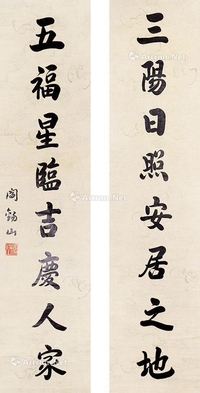 三陽日照安居之地
五福星臨吉慶人家
閻錫山